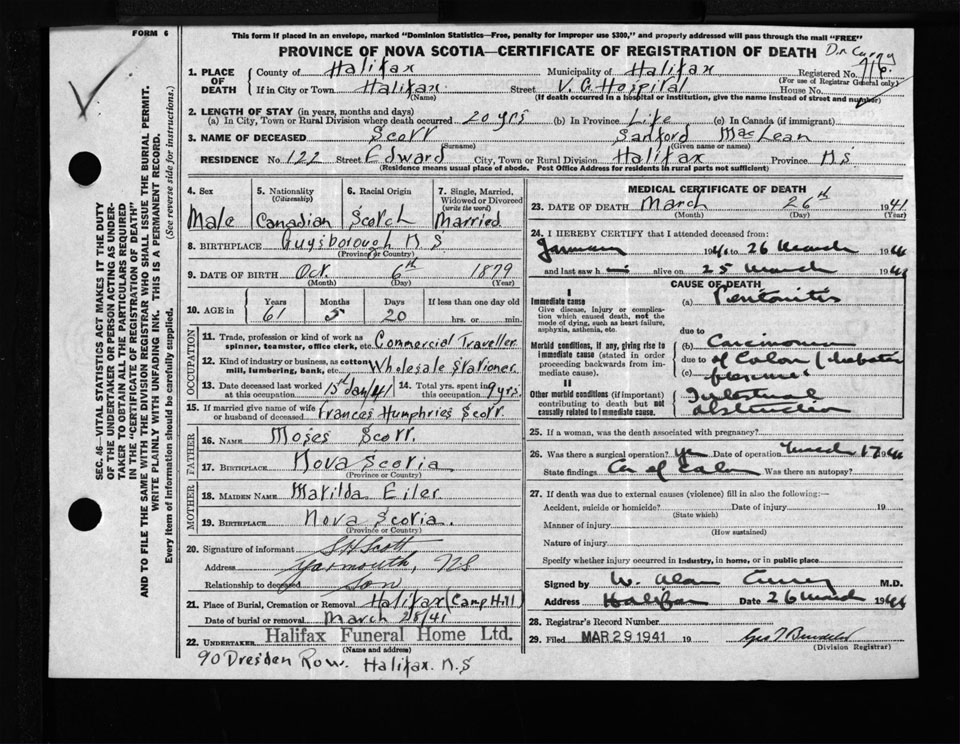 FORM 6
This form if placed in an envelope, marked "Dominion Statistics—Free, penalty for improper use $300," and properly addressed will pass through the mail "FREE"
PROVINCE OF NOVA SCOTIA—CERTIFICATE OF REGISTRATION OF DEATH
Dr Curry
1. PLACE OF DEATH
County of Halifax Municipality of Halifax Registered No. 716.
(For use of Registrar General only)
If in City or Town Halifax Street V. G. Hospital House No.
(Name) (If death occurred in a hospital or institution, give the name instead of street and number)
2. LENGTH OF STAY (in years, months and days)
(a) In City, Town or Rural Division where death occurred 20 yrs (b) In Province Life (c) In Canada (if immigrant)
3. NAME OF DECEASED Scott Sanford MacLean
(Surname) (Given name or names)
RESIDENCE No. 122 Street Edward City, Town or Rural Division Halifax Province N.S
(Residence means usual place of abode. Post Office Address for residents in rural parts not sufficient)
4. Sex
Male
5. Nationality
(Citizenship)
Canadian
6. Racial Origin
Scotch
7. Single, Married, Widowed or Divorced
(write the word)
Married
8. BIRTHPLACE Guysborough N S
(Province or Country)
9. DATE OF BIRTH Oct. 6th 1879
(Month) (Day) (Year)
10. AGE in Years Months Days If less than one day old
61 5 20 hrs. or min.
OCCUPATION
11. Trade, profession or kind of work as spinner, teamster, office clerk, etc. Commercial Traveller
12. Kind of industry or business, as cotton mill, lumbering, bank, etc. Wholesale Stationer
13. Date deceased last worked at this occupation 15th Jan/41 14. Total yrs. spent in this occupation 9 yrs.
15. If married give name of wife or husband of deceased Frances Humphries Scott
FATHER
16. NAME Moses Scott.
17. BIRTHPLACE Nova Scotia
MOTHER
18. MAIDEN NAME Matilda Eiler
19. BIRTHPLACE Nova Scotia.
(Province or Country)
20. Signature of informant S H Scott
Address Yarmouth, NS
Relationship to deceased Son
21. Place of Burial, Cremation or Removal Halifax (Camp Hill)
Date of burial or removal March 28/41
22. UNDERTAKER Halifax Funeral Home Ltd.
(Name and address)
90 Dresden Row. Halifax. N.S
MEDICAL CERTIFICATE OF DEATH
23. DATE OF DEATH March 26th 1941
(Month) (Day) (Year)
24. I HEREBY CERTIFY that I attended deceased from:
January 1941 to 26 March 1941
and last saw him alive on 25 March 1941
CAUSE OF DEATH
I
Immediate cause
Give disease, injury or complication which caused death, not the mode of dying, such as heart failure, asphyxia, asthenia, etc.
(a) Peritonitis
due to
Morbid conditions, if any, giving rise to immediate cause (stated in order proceeding backwards from immediate cause).
(b) Carcinoma
due to of Colon
(c)
II
Other morbid conditions (if important) contributing to death but not causally related to immediate cause.
Intestinal obstruction
25. If a woman, was the death associated with pregnancy?
26. Was there a surgical operation? yes Date of operation March 17 1941
State findings Ca of Colon Was there an autopsy?
27. If death was due to external causes (violence) fill in also the following:—
Accident, suicide or homicide? Date of injury 19
(State which)
Manner of injury
(How sustained)
Nature of injury
Specify whether injury occurred in industry, in home, or in public place
Signed by W. Alan Curry M.D.
Address Halifax Date 26 March 1941
28. Registrar's Record Number
29. Filed MAR 29 1941 19
(Division Registrar)
SEC. 46—VITAL STATISTICS ACT MAKES IT THE DUTY
OF THE UNDERTAKER OR PERSON ACTING AS UNDER-
TAKER TO OBTAIN ALL THE PARTICULARS REQUIRED
IN THE "CERTIFICATE OF REGISTRATION OF DEATH"
AND TO FILE THE SAME WITH THE DIVISION REGISTRAR WHO SHALL ISSUE THE BURIAL PERMIT.
WRITE PLAINLY WITH UNFADING INK. THIS IS A PERMANENT RECORD.
Every item of information should be carefully supplied. (See reverse side for instructions.)